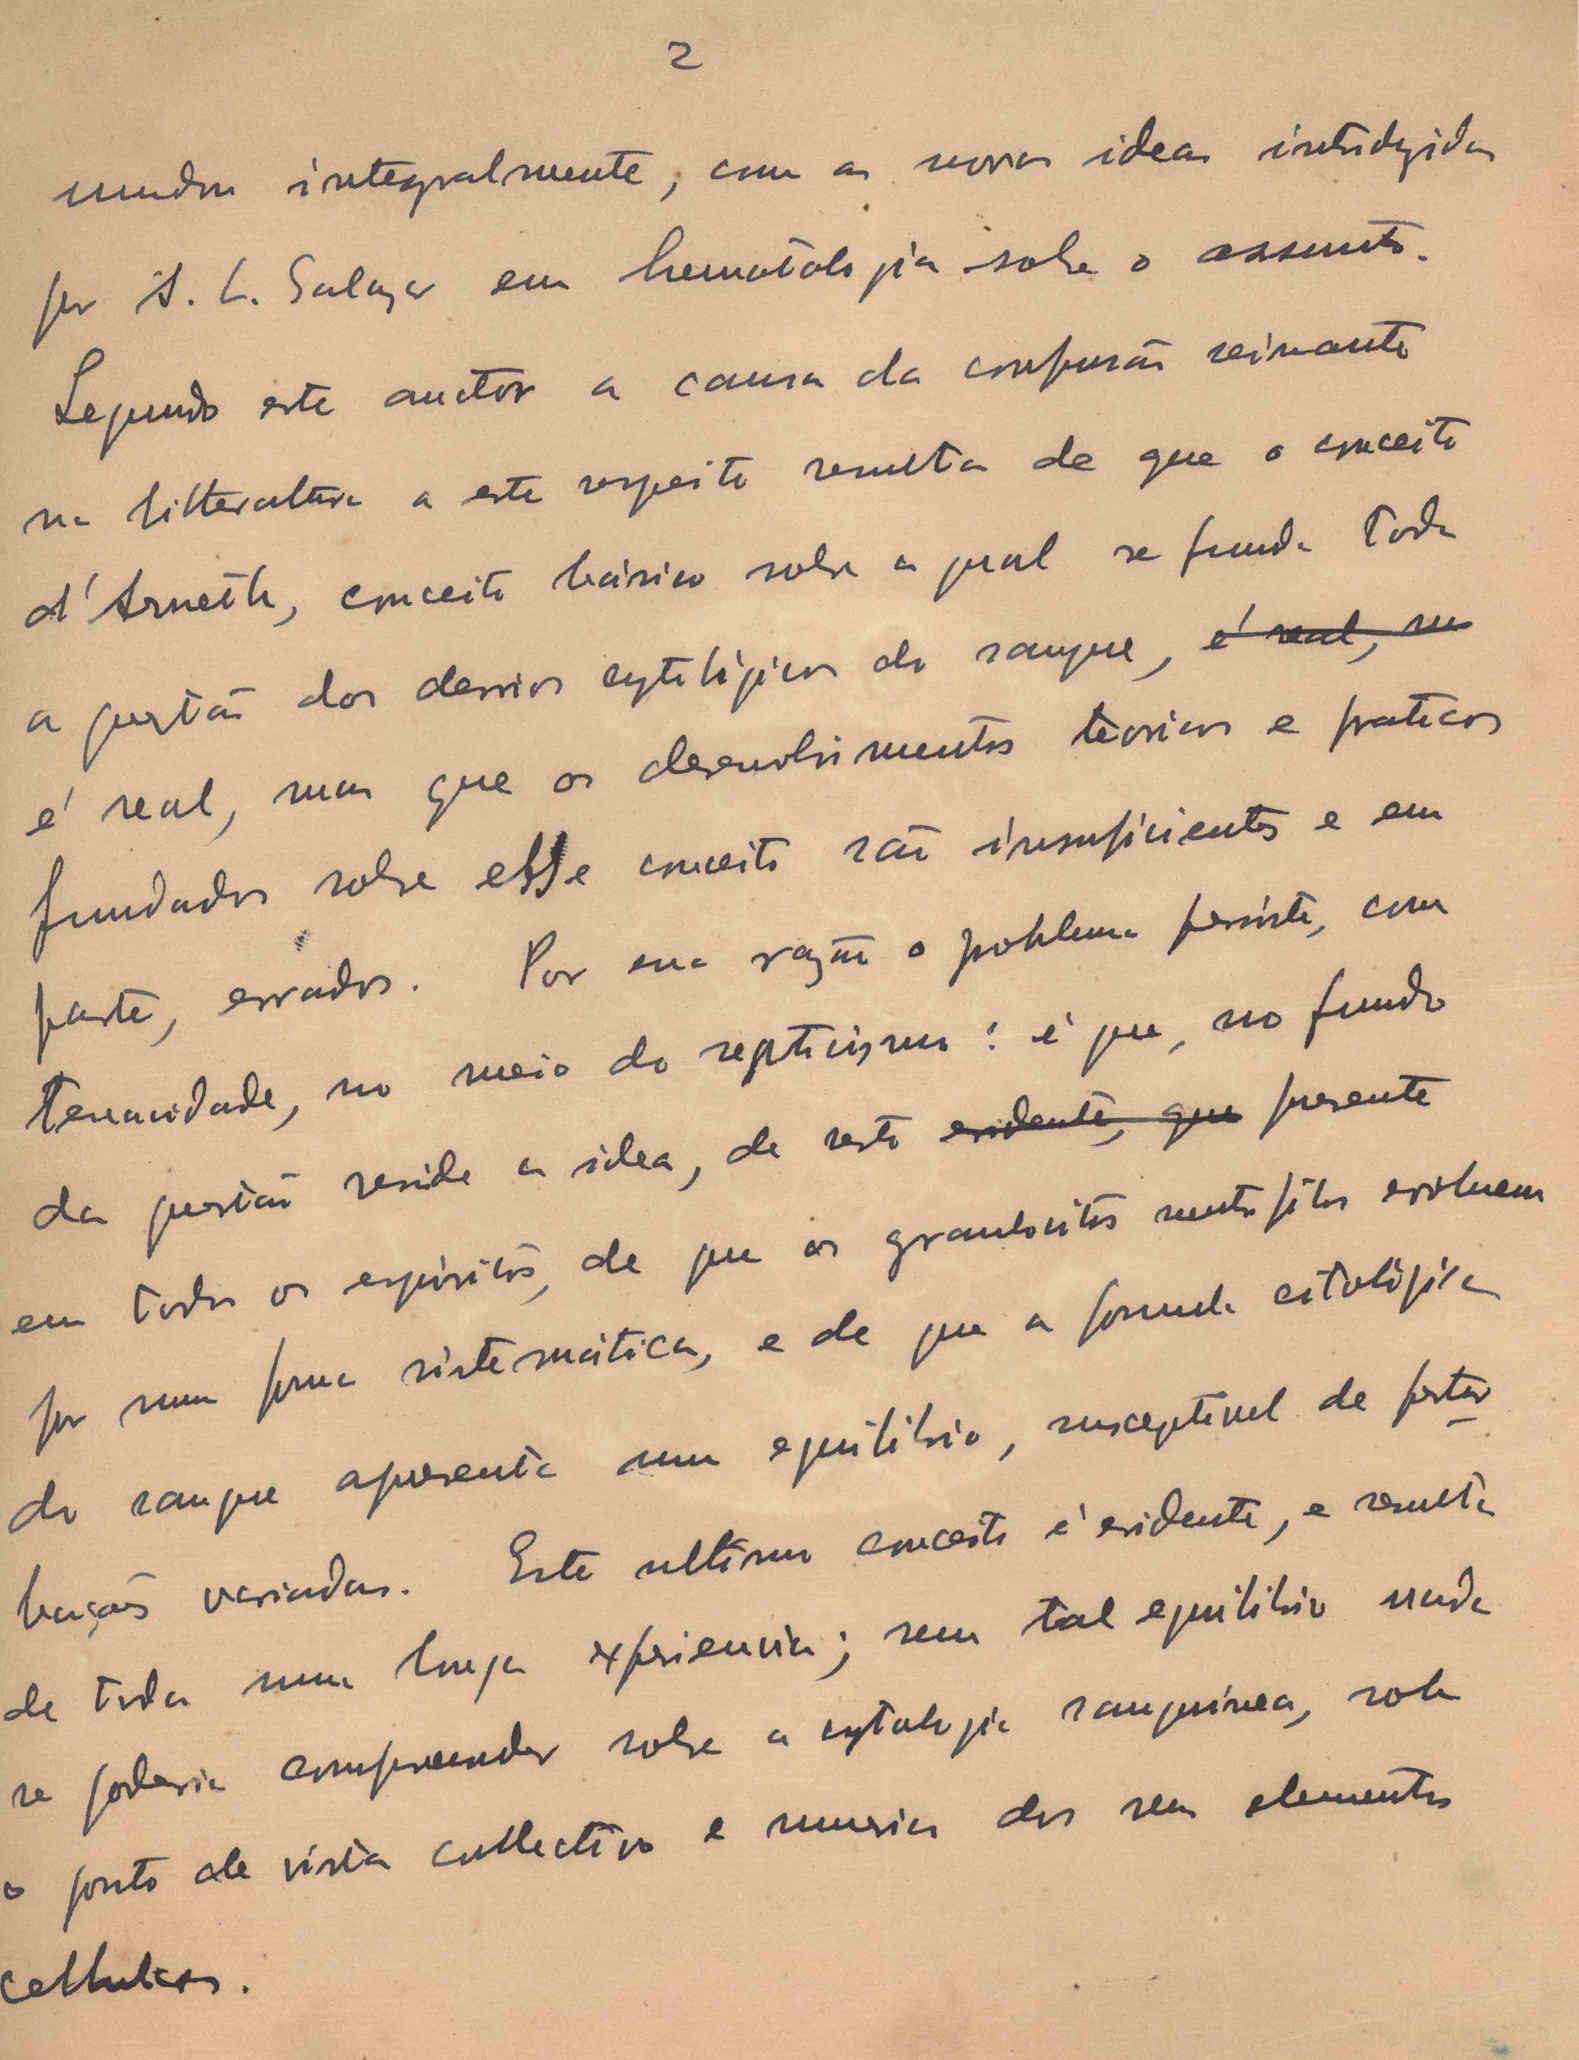 2
mudou integralmente, com as novas ideas introduzidas
por A. L. Salazar em hematologia sobre o assunto.
Segundo este auctor a causa da confusão reinante
na litteratura a este respeito resulta de que o conceito
d'Arneth, conceito básico sobre a qual se funda toda
a questão dos desvios cytológicos do sangue, é real, m
é real, mas que os desenvolvimentos teoricos e praticos
fundados sobre esse conceito são insuficientes e em
parte, errados. Por essa razão o problema persiste, com
tenacidade, no meio do septicismo: é que, no fundo
da questão reside a idea, de resto evidente, que presente
em todos os espiritos, de que os granulocitos neutrofilos evoluem
por uma forma sistemática, e de que a formula citológica
do sangue apresenta um equilibrio, susceptivel de pertur
bações variadas. Este ultimo conceito é evidente, e resulta
de toda uma longa experiencia; sem tal equilibrio nada
se poderia comprehender sobre a cytologia sanguínea, sob
o ponto de vista collectivo e dos seus elementos
cellulares.